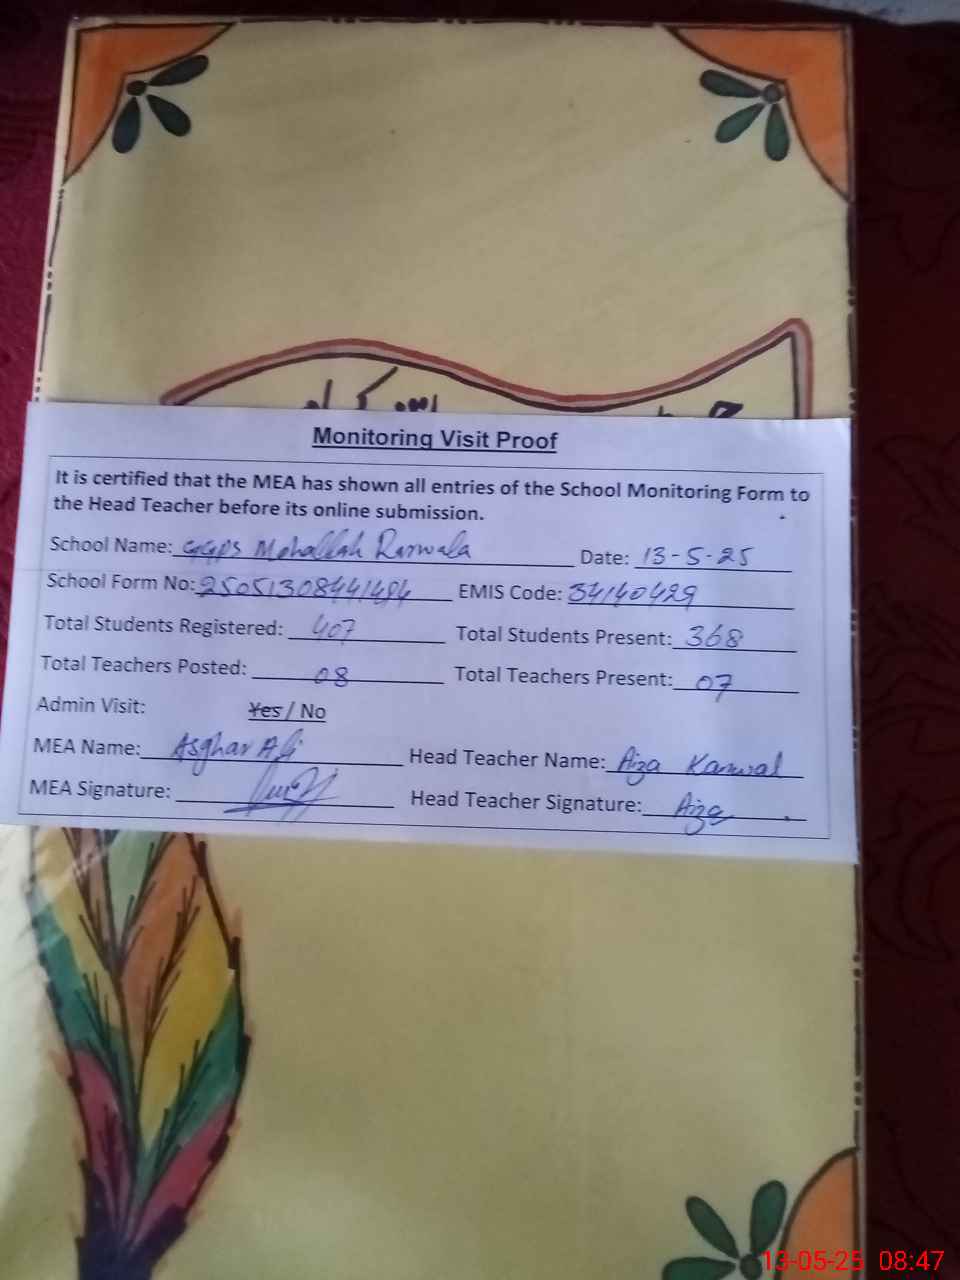 Monitoring Visit Proof
It is certified that the MEA has shown all entries of the School Monitoring Form to
the Head Teacher before its online submission.
School Name: GGPS Mohallah Ranwala Date: 13-5-25
School Form No: 25051308441484 EMIS Code: 34140429
Total Students Registered: 407 Total Students Present: 368
Total Teachers Posted: 08 Total Teachers Present: 07
Admin Visit: Yes / No
MEA Name: Asghar Ali Head Teacher Name: Aiza Kanwal
MEA Signature: Head Teacher Signature: Aiza
13-05-25 08:47